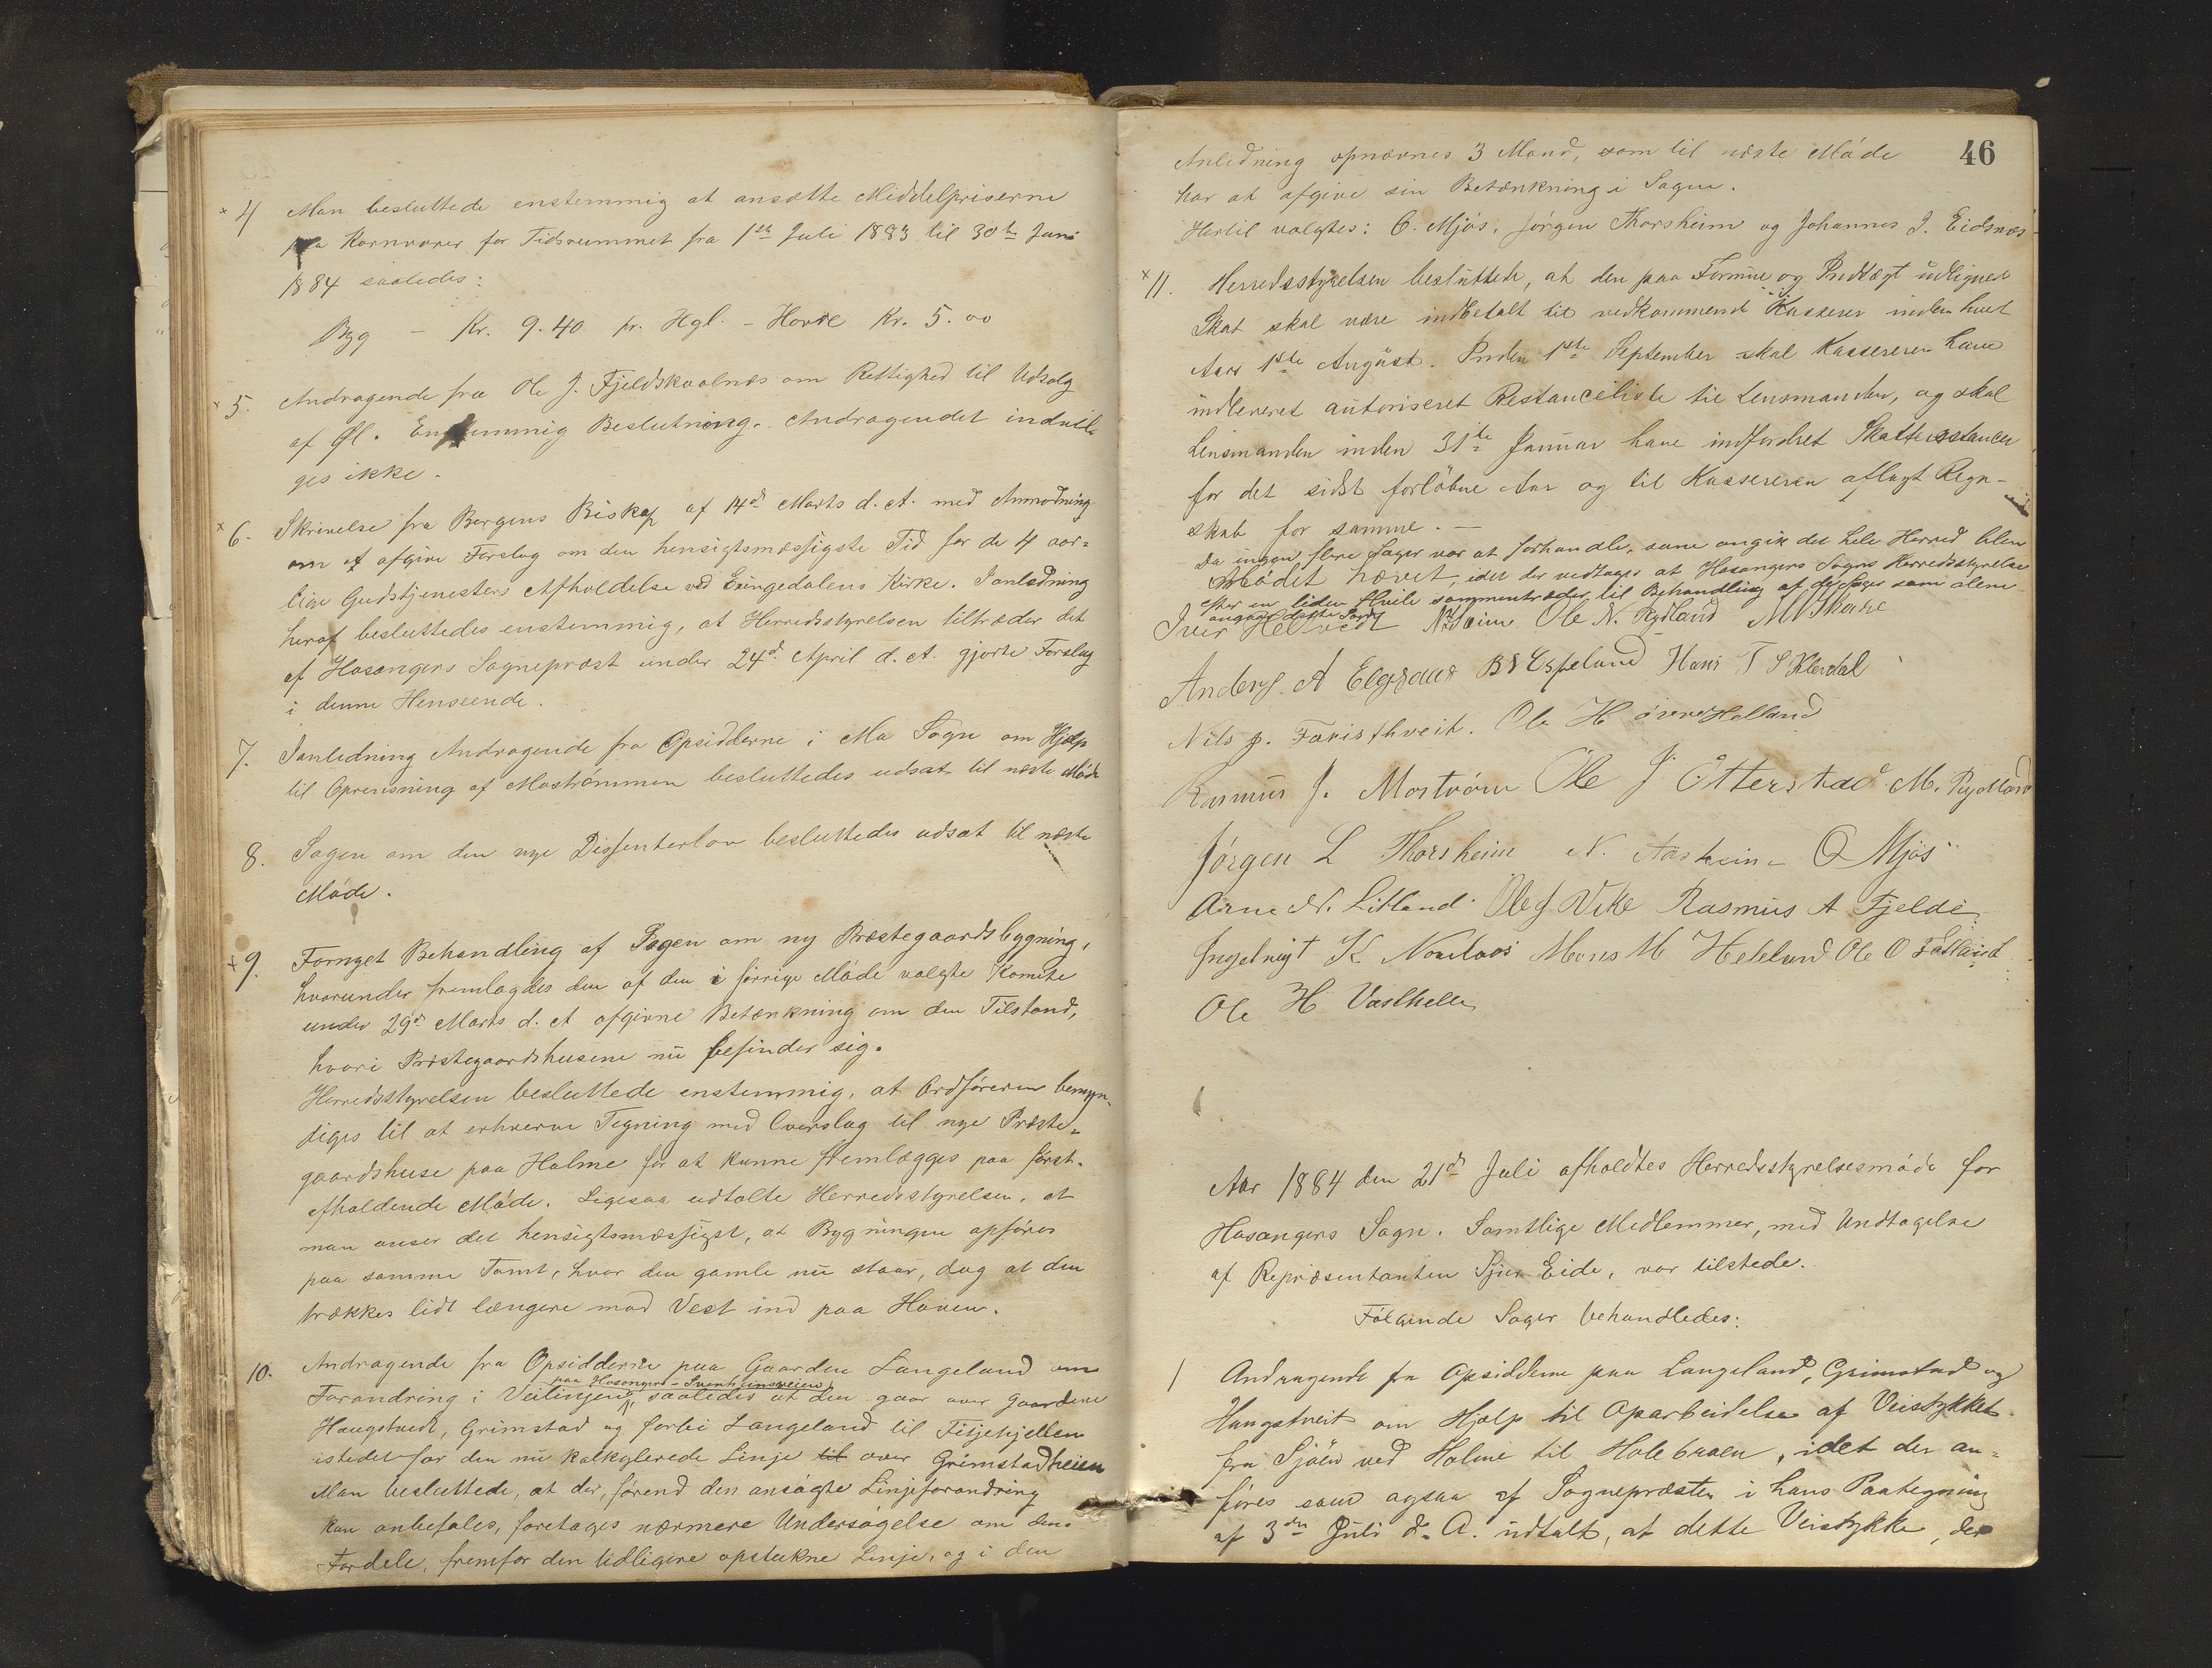 × 4 Man besluttede enstemmig at ansætte Middelpriserne
paa Kornvarer for Tidsrummet fra 1ste Juli 1883 til 30te Juni
1884 saaledes:
Byg – Kr. 9.40 pr. Hgl. – Havre Kr. 5.00
× 5. Andragende fra Ole J. Fjeldskaalnæs om Rettighed til Udsalg
af Øl. Enstemmig Beslutning. Andragendet indvil-
ges ikke.
× 6. Skrivelse fra Bergens Biskop af 14de Marts d. A. med Anmodning
om at afgive Forslag om den hensigtsmæssigste Tid for de 4 aar-
lige Gudstjenesters Afholdelse ved Exingedalens Kirke. I anledning
heraf besluttedes enstemmig, at Herredsstyrelsen tiltræder det
af Hosangers Sognepræst under 24de April d. A. gjorte Forslag
i denne Henseende.
7. I anledning Andragende fra Opsidderne i Mo Sogn om Hjælp
til Oprensning af Mostrømmen besluttedes udsat til næste Møde
8. Sagen om den nye Dissenterlov besluttedes udsat til næste
Møde.
× 9. Fornyet Behandling af Sagen om ny Præstegaardsbygning,
hvorunder fremlagdes den af den i forrige Møde valgte Komite
under 29de Marts d. A afgivne Betænkning om den Tilstand,
hvori Præstegaardshusene nu befinder sig.
Herredsstyrelsen besluttede enstemmig, at Ordføreren bemyn-
diges til at erhverve Tegning med Overslag til nye Præste-
gaardshuse paa Holme for at kunne fremlægges paa først-
afholdende Møde. Ligesaa udtalte Herredsstyrelsen, at
man anser det hensigtsmæssigst, at Bygningen opføres
paa samme Tomt, hvor den gamle nu staar, dog at den
trækkes lidt længere mod Vest ind paa Haven.
10. Andragende fra Opsidderne paa Gaarden Langeland om
paa Hosanger–Ivarheimsveien
Forandring i Veilinjen, saaledes at den gaar over Gaardene
Haugstvedt, Grimstad og forbi Langeland til Fitjekjellen
istedetfor den nu kalkylerede Linje til over Grimstadheien
Man besluttede, at der, førend den ansøgte Linjeforandring
kan anbefales, foretages nærmere Undersøgelse om dens
Fordele, fremfor den tidligere opstukne Linje, og i den
46
Anledning opnævnes 3 Mand, som til næste Møde
har at afgive sin Betænkning i Sagen.
Hertil valgtes: O. Mjøs, Jørgen Thorsheim og Johannes J. Eidsnæs
× 11. Herredsstyrelsen besluttede, at den paa Formue og Indtægt udlignede
Skat skal være indbetalt til vedkommende Kasserer inden hvert
Aars 1ste August. Inden 1ste September skal Kassereren have
indleveret autoriseret Restanceliste til Lensmanden, og skal
Lensmanden inden 31te Januar have indfordret Skatterestancen
for det sidst forløbne Aar og til Kassereren aflagt Regn-
skab for samme. —
Da ingen flere Sager var at forhandle, som angik det hele Herred blev
Mødet hævet, idet der vedtages at Hosangers Sogns Herredsstyrelse
efter en liden Hvile sammentræder til Behandling af de Sager som alene
angaar dette Sogn
Iver Helvedt Ole N. Rydland M Skare
Anders A Elgsaas B S Espeland Hans T S Kleidal
Nils J. Faristhveit. Ole H øvre Helland
Rasmus J. Mostrøm Ole J Otterstad M. Rydland
Jørgen L Thorsheim N. Aasheim O Mjøs
Arne N. Litland Ole J Vike Rasmus A Fjelde
Ingebrigt K Mons M Helland Ole O
Ole H
Aar 1884 den 21de Juli afholdtes Herredsstyrelsesmøde for
Hosangers Sogn. Samtlige Medlemmer, med Undtagelse
af Repræsentanten Sjur Eide, var tilstede.
Følgende Sager behandledes:
1 Andragende fra Opsidderne paa Langeland, Grimstad og
Haugstveit om Hjælp til Oparbeidelse af Veistykket
fra Sjöen ved Holme til Holebraen, idet der an-
føres som ogsaa af Sognepræsten i hans Paategning
af 3die Juli d. A. udtalt, at dette Veistykke, der